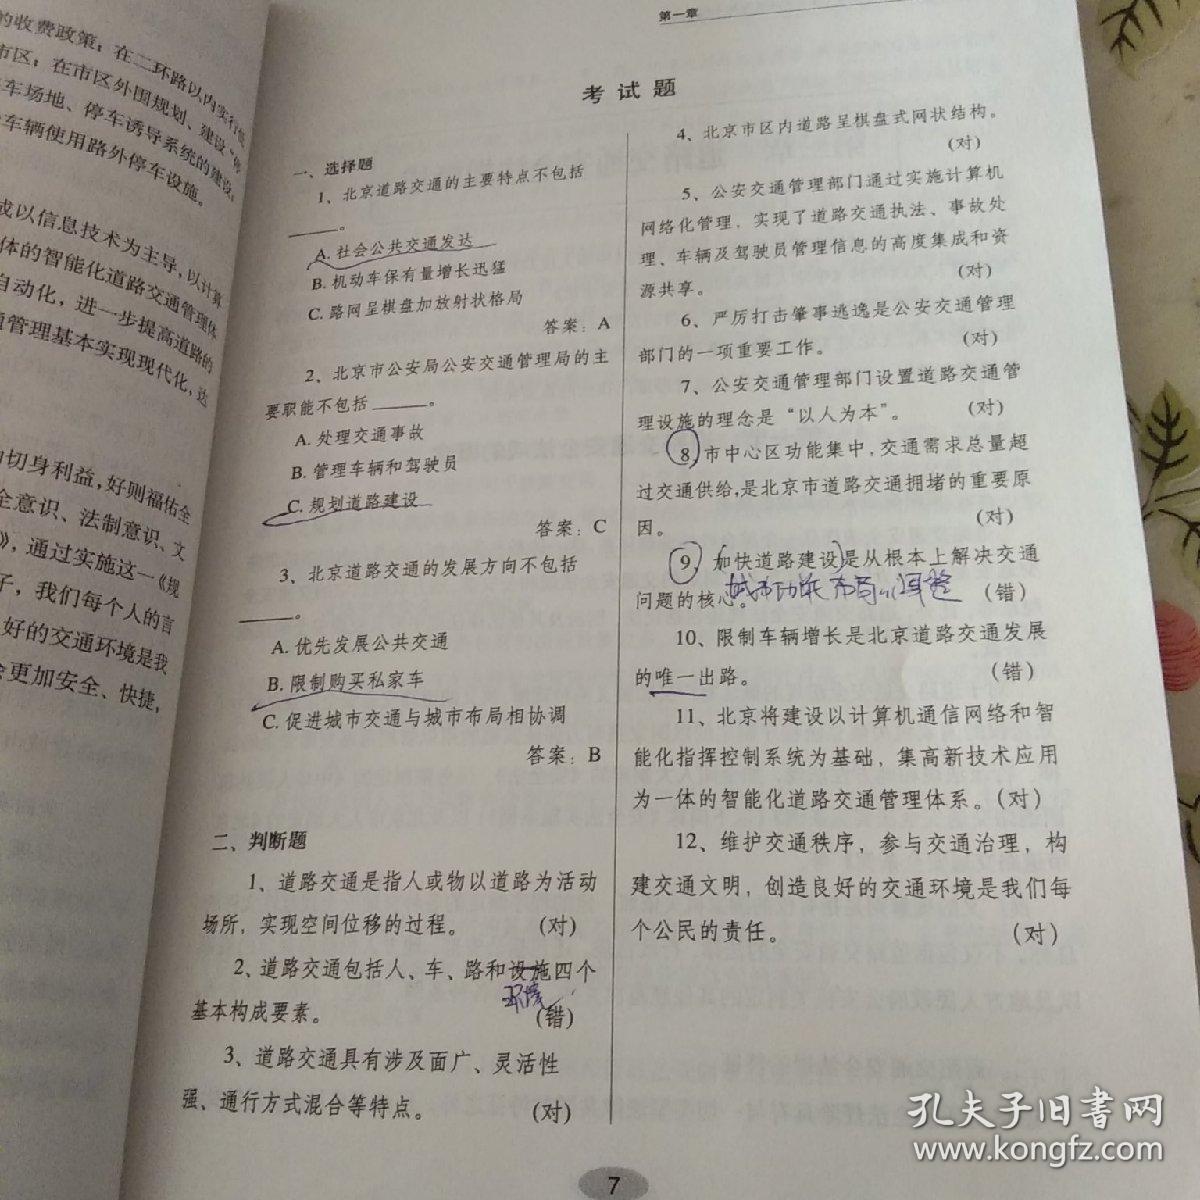 的收费政策：在二环路以内实行低
市区：在市区外围规划、建设“停
车场地、停车诱导系统的建设，
车辆使用路外停车设施。
成以信息技术为主导，以计算
体的智能化道路交通管理体
自动化，进一步提高道路的
通管理基本实现现代化，达
切身利益，好则福佑全
全意识、法制意识、文
》，通过实施这一《规
子，我们每个人的言
好的交通环境是我
会更加安全、快捷，
第一章
考试题
一、选择题
1、北京道路交通的主要特点不包括
______。
A. 社会公共交通发达
B. 机动车保有量增长迅猛
C. 路网呈棋盘加放射状格局
答案：A
2、北京市公安局公安交通管理局的主
要职能不包括______。
A. 处理交通事故
B. 管理车辆和驾驶员
C. 规划道路建设
答案：C
3、北京道路交通的发展方向不包括
______。
A. 优先发展公共交通
B. 限制购买私家车
C. 促进城市交通与城市布局相协调
答案：B
二、判断题
1、道路交通是指人或物以道路为活动
场所，实现空间位移的过程。 (对)
2、道路交通包括人、车、路和设施四个
环境
基本构成要素。 (错)
3、道路交通具有涉及面广、灵活性
强、通行方式混合等特点。 (对)
4、北京市区内道路呈棋盘式网状结构。
(对)
5、公安交通管理部门通过实施计算机
网络化管理，实现了道路交通执法、事故处
理、车辆及驾驶员管理信息的高度集成和资
源共享。 (对)
6、严厉打击肇事逃逸是公安交通管理
部门的一项重要工作。 (对)
7、公安交通管理部门设置道路交通管
理设施的理念是“以人为本”。 (对)
8、市中心区功能集中，交通需求总量超
过交通供给，是北京市道路交通拥堵的重要原
因。 (对)
9、加快道路建设是从根本上解决交通
城市功能布局的调整
问题的核心。 (错)
10、限制车辆增长是北京道路交通发展
的唯一出路。 (错)
11、北京将建设以计算机通信网络和智
能化指挥控制系统为基础，集高新技术应用
为一体的智能化道路交通管理体系。(对)
12、维护交通秩序，参与交通治理，构
建交通文明，创造良好的交通环境是我们每
个公民的责任。 (对)
7
孔夫子旧书网
www.kongfz.com